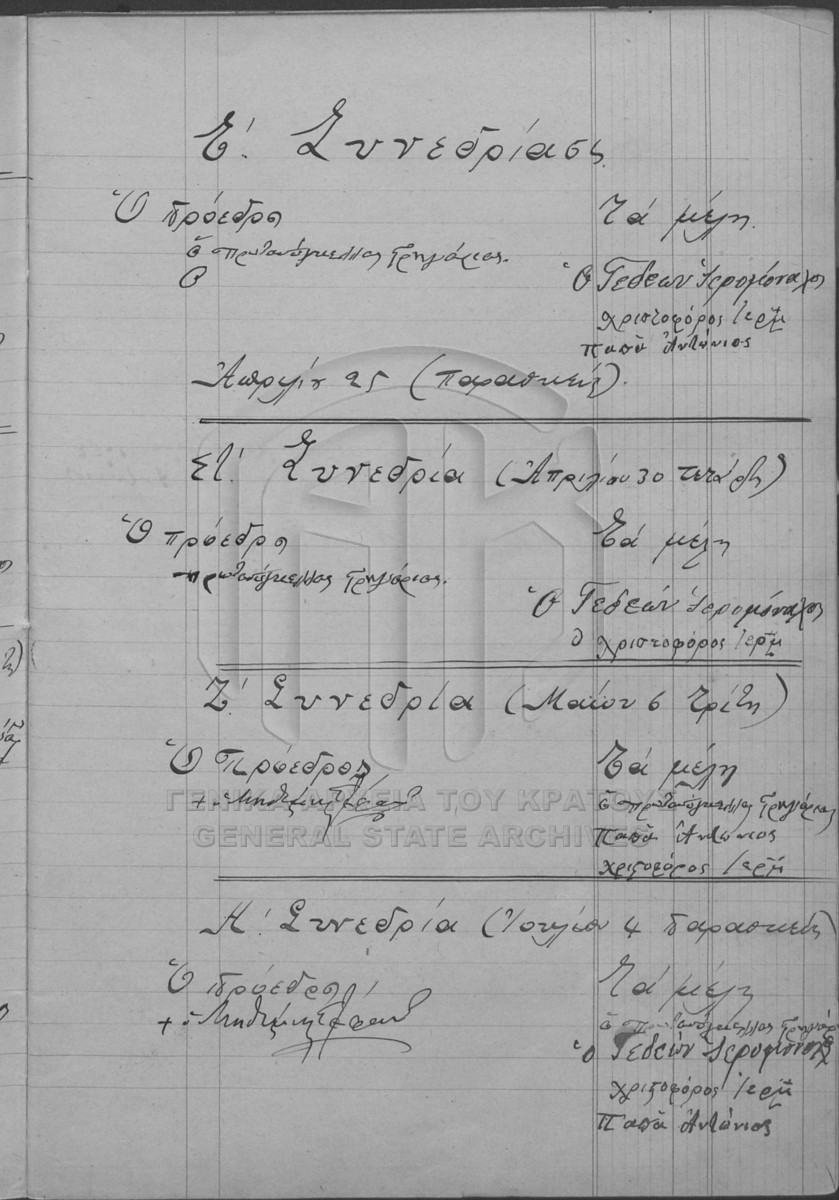 Ε΄. Συνεδρίασς
Ὁ πρόεδρος
Τά μέλη.
ὁ πρωτοσύγκελλος Γρηγόριος.
Ο
Ὁ Γεδεών Ἱερομόναχος
Χριστοφόρος Ἱερμ
Παπᾶ Ἀντώνιος
Ἀπριλίου 25 (Παρασκευή).
ΣΤ΄. Συνεδρία (Ἀπριλίου 30 Τετάρτη)
Ὁ πρόεδρος
Τά μέλη
πρωτοσύγκελλος Γρηγόριος.
Ὁ Γεδεών Ἱερομόναχος
Ὁ Χριστοφόρος Ἱερμ
Ζ΄. Συνεδρία (Μαΐου 6 Τρίτη)
Ὁ Πρόεδρος
Τά μέλη
ὁ πρωτοσύγκελλος Γρηγόριος
Παπᾶ Ἀντώνιος
Χριστοφόρος Ἱερμ
ΓΕΝΙΚΑ ΑΡΧΕΙΑ ΤΟΥ ΚΡΑΤΟΥΣ
GENERAL STATE ARCHIVES
Η΄. Συνεδρία (Ἰουλίου 4 Παρασκευή)
Ὁ πρόεδρος
Τά μέλη
ὁ πρωτοσύγκελλος
Ὁ Γεδεών Ἱερομόναχος
Χριστοφόρος Ἱερμ
Παπᾶ Ἀντώνιος